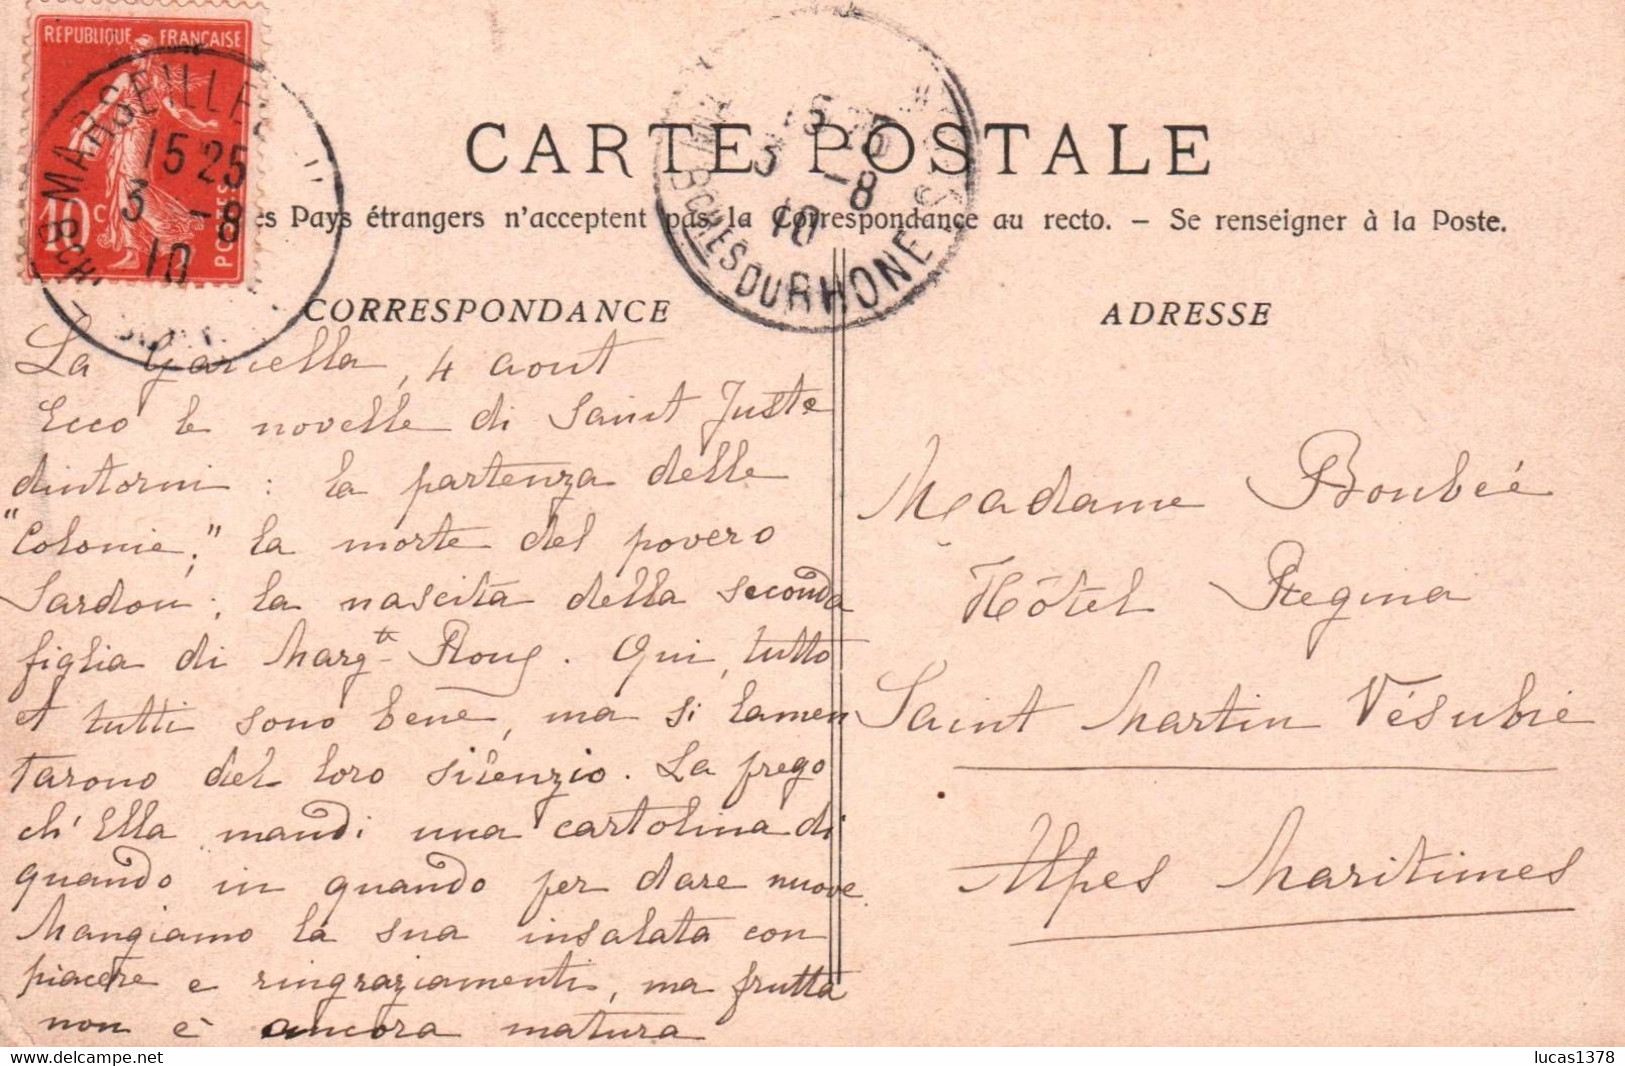 RÉPUBLIQUE FRANÇAISE
10c POSTES
MARSEILLE
15 25
3 -8
10
BCH
3 -8
10
BCHES DU RHONE
CARTE POSTALE
es Pays étrangers n'acceptent pas la Correspondance au recto. — Se renseigner à la Poste.
CORRESPONDANCE
La Garcella, 4 aout
Ecco le novelle di Saint Juste
dintorni : la partenza delle
"Colonie;" la morte del povero
Sardou; la nascita della seconda
figlia di Marg.te Roug. Qui, tutto
et tutti sono bene, ma si lamen
tarono del loro silenzio. La prego
ch'Ella mandi una cartolina di
quando in quando per dare nuove.
Mangiamo la sua insalata con
piacere e ringraziamenti, ma frutta
non è ancora matura
ADRESSE
Madame Boubée
Hôtel Regina
Saint Martin Vésubie
Alpes Maritimes
lucas1378